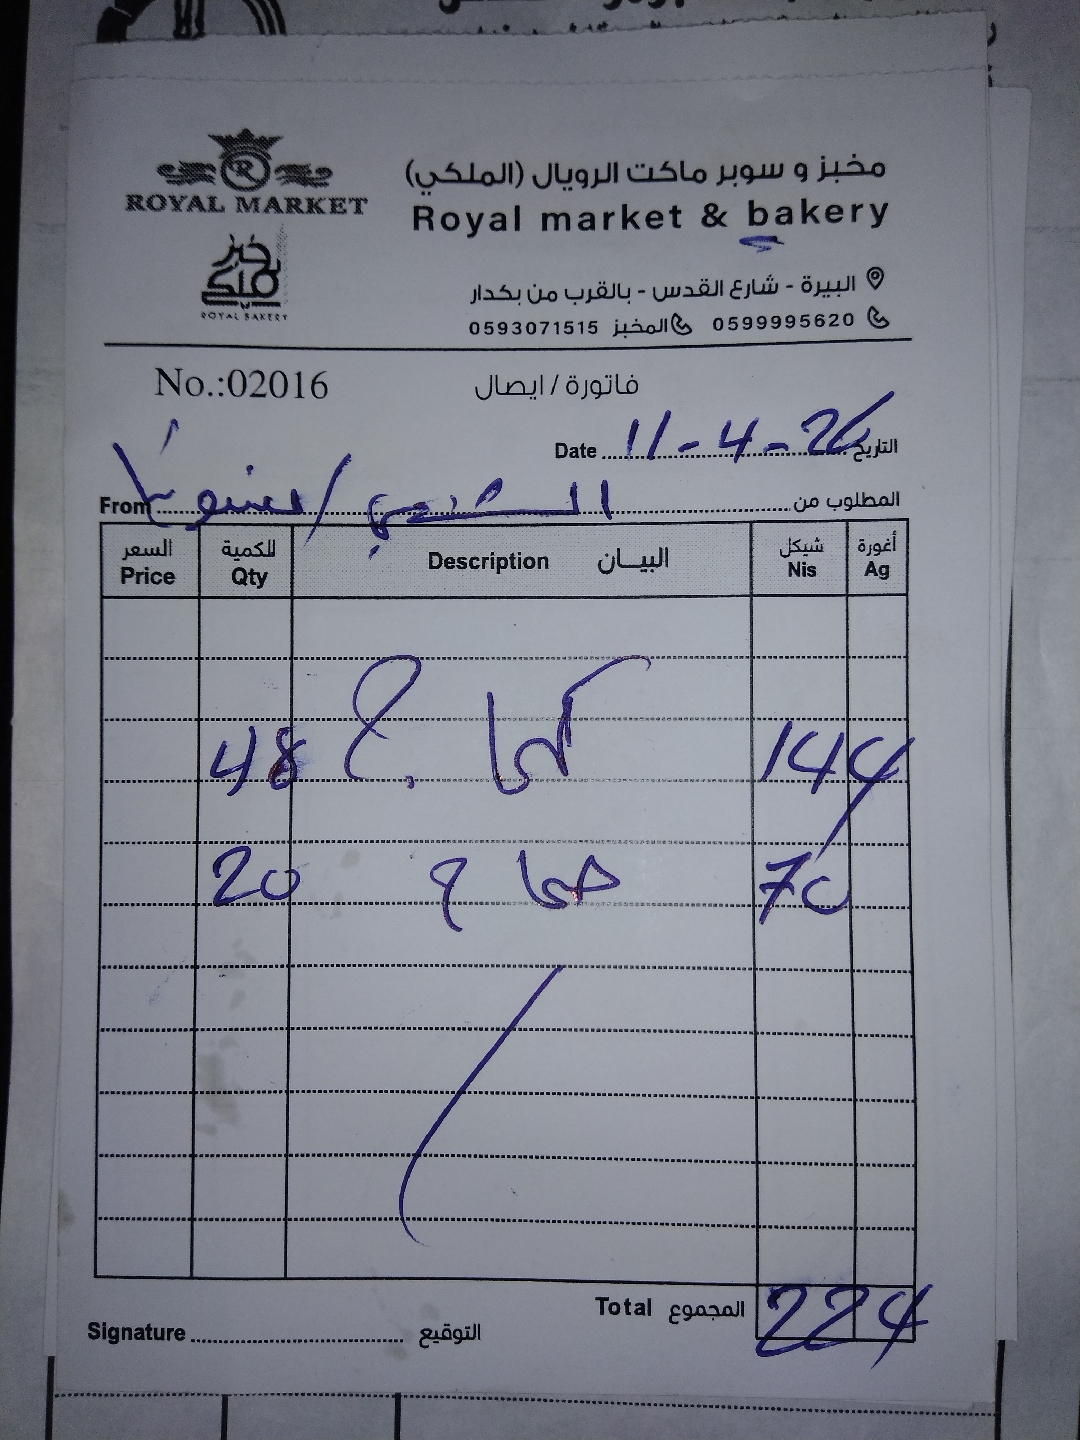 ROYAL MARKET
مخبز و سوبر ماكت الرويال (الملكي)
Royal market & bakery
ROYAL BAKERY
البيرة - شارع القدس - بالقرب من بكدار
0599995620 المخبز 0593071515
No.:02016
فاتورة / ايصال
Date 11-4-26 التاريخ
From المطلوب من
السعر الكمية البيــان شيكل أغورة
Price Qty Description Nis Ag
48 كماج 144
20 حمام 70
Total المجموع 224
Signature التوقيع